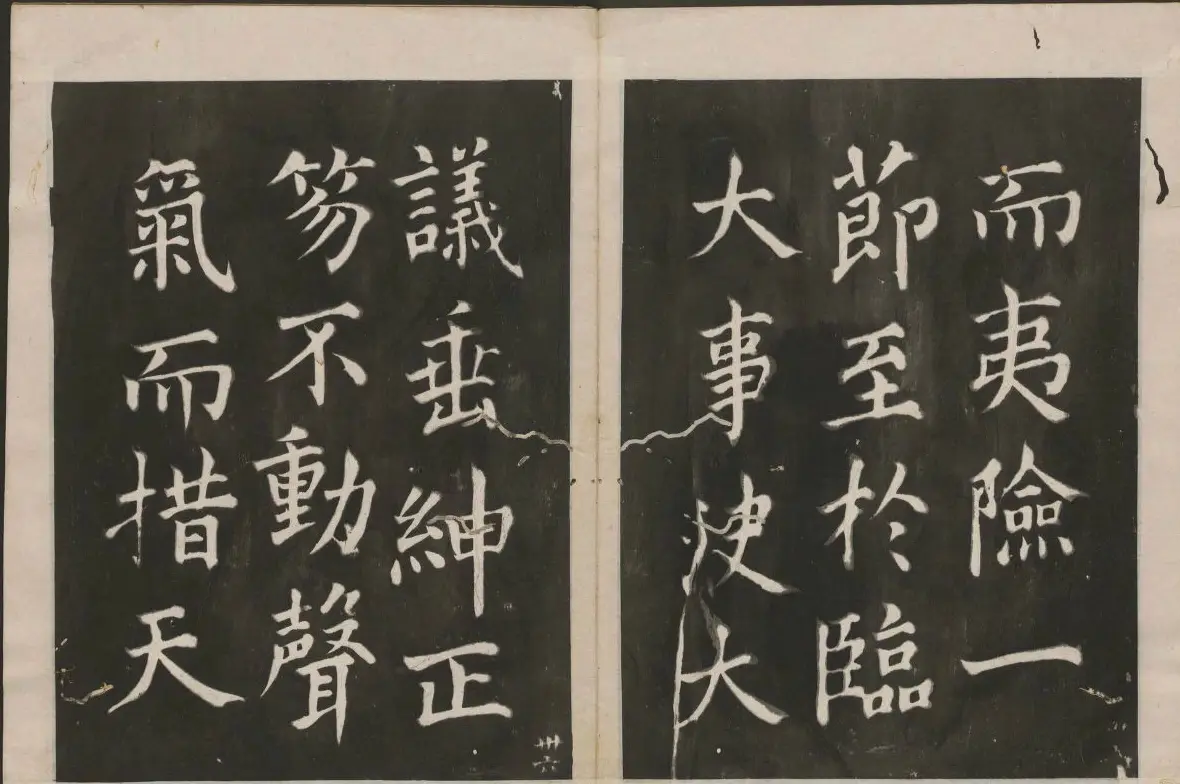 而夷險一
節至於臨
大事決大
議垂紳正
笏不動聲
氣而措天
卅六